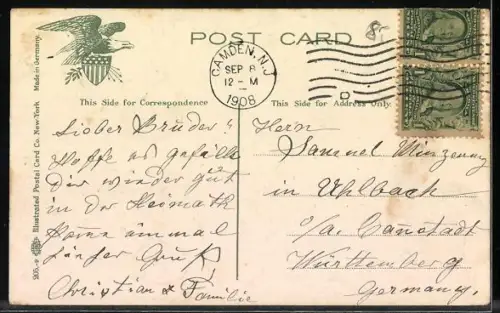 POST CARD
CAMDEN, N.J.
SEP 8
12-M
1908
D
Made in Germany.
Illustrated Postal Card Co. New-York.
This Side for Correspondence
This Side for Address Only.
Lieber Bruder!
Hoffe es gefällt
Dir wieder gut
in der Heimath
einmal
Gruß
Christian & Familie
Herrn
Samuel
in Uhlbach
o/a. Canstadt
Württemberg
Germany.